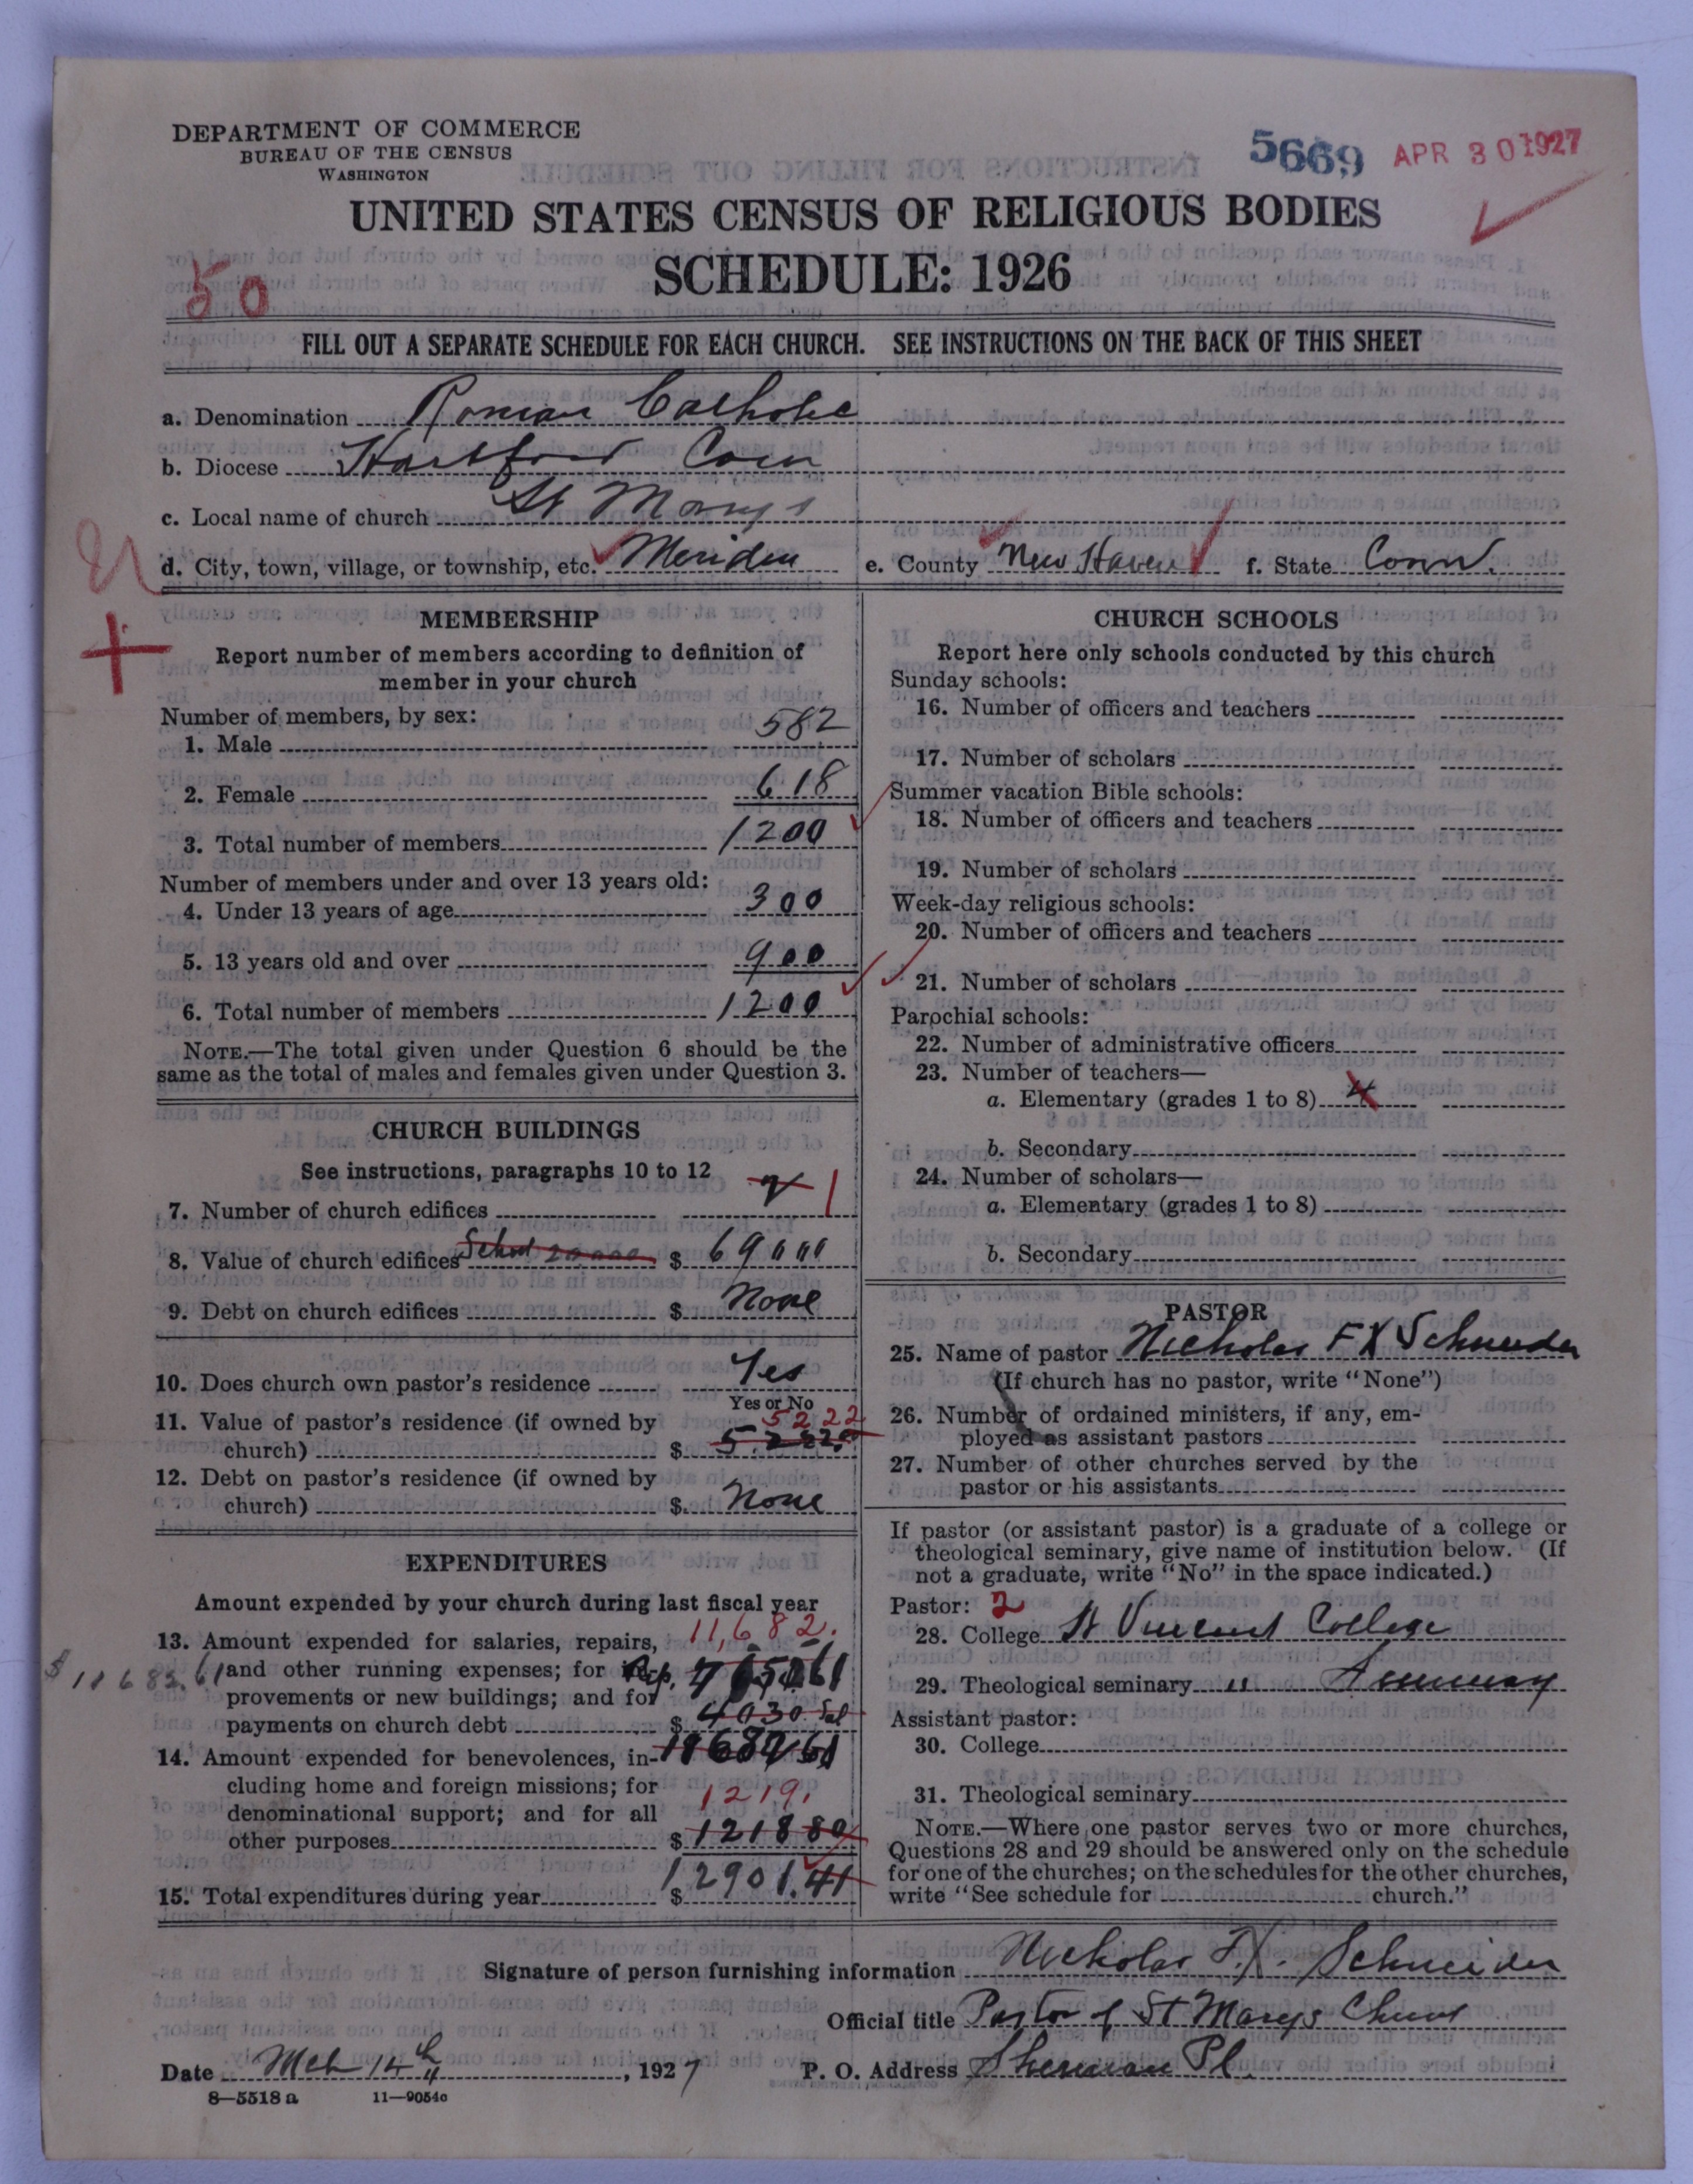 DEPARTMENT OF COMMERCE
BUREAU OF THE CENSUS
WASHINGTON
5669 APR 30 1927
UNITED STATES CENSUS OF RELIGIOUS BODIES
SCHEDULE: 1926
50
FILL OUT A SEPARATE SCHEDULE FOR EACH CHURCH. SEE INSTRUCTIONS ON THE BACK OF THIS SHEET
a. Denomination Roman Catholic
b. Diocese Hartford Conn
c. Local name of church St Marys
d. City, town, village, or township, etc. Meriden e. County New Haven f. State Conn.
MEMBERSHIP
Report number of members according to definition of
member in your church
Number of members, by sex:
1. Male 582
2. Female 618
3. Total number of members 1200
Number of members under and over 13 years old:
4. Under 13 years of age 300
5. 13 years old and over 900
6. Total number of members 1200
NOTE.—The total given under Question 6 should be the
same as the total of males and females given under Question 3.
CHURCH BUILDINGS
See instructions, paragraphs 10 to 12
7. Number of church edifices 1
8. Value of church edifices School 20000 $ 69000
9. Debt on church edifices $ None
10. Does church own pastor's residence Yes
Yes or No
11. Value of pastor's residence (if owned by 5222
church) $
12. Debt on pastor's residence (if owned by
church) $ None
EXPENDITURES
Amount expended by your church during last fiscal year
13. Amount expended for salaries, repairs, 11,682.
$11682.61 and other running expenses; for im-
provements or new buildings; and for
payments on church debt $ 4030 Sal
14. Amount expended for benevolences, in- 11682 61
cluding home and foreign missions; for
denominational support; and for all 1219.
other purposes $ 1218 80
15. Total expenditures during year $ 12901.41
CHURCH SCHOOLS
Report here only schools conducted by this church
Sunday schools:
16. Number of officers and teachers
17. Number of scholars
Summer vacation Bible schools:
18. Number of officers and teachers
19. Number of scholars
Week-day religious schools:
20. Number of officers and teachers
21. Number of scholars
Parochial schools:
22. Number of administrative officers
23. Number of teachers—
a. Elementary (grades 1 to 8) 4
b. Secondary
24. Number of scholars—
a. Elementary (grades 1 to 8)
b. Secondary
PASTOR
25. Name of pastor Nicholas F X Schneider
(If church has no pastor, write "None")
26. Number of ordained ministers, if any, em-
ployed as assistant pastors
27. Number of other churches served by the
pastor or his assistants
If pastor (or assistant pastor) is a graduate of a college or
theological seminary, give name of institution below. (If
not a graduate, write "No" in the space indicated.)
Pastor: 2
28. College St Vincent College
29. Theological seminary " Seminary
Assistant pastor:
30. College
31. Theological seminary
NOTE.—Where one pastor serves two or more churches,
Questions 28 and 29 should be answered only on the schedule
for one of the churches; on the schedules for the other churches,
write "See schedule for church."
Signature of person furnishing information Nicholas F.X. Schneider
Official title Pastor of St Marys Church
Date Mch 14th, 1927 P. O. Address Sherman Pl.
8—5518 a 11—9054c